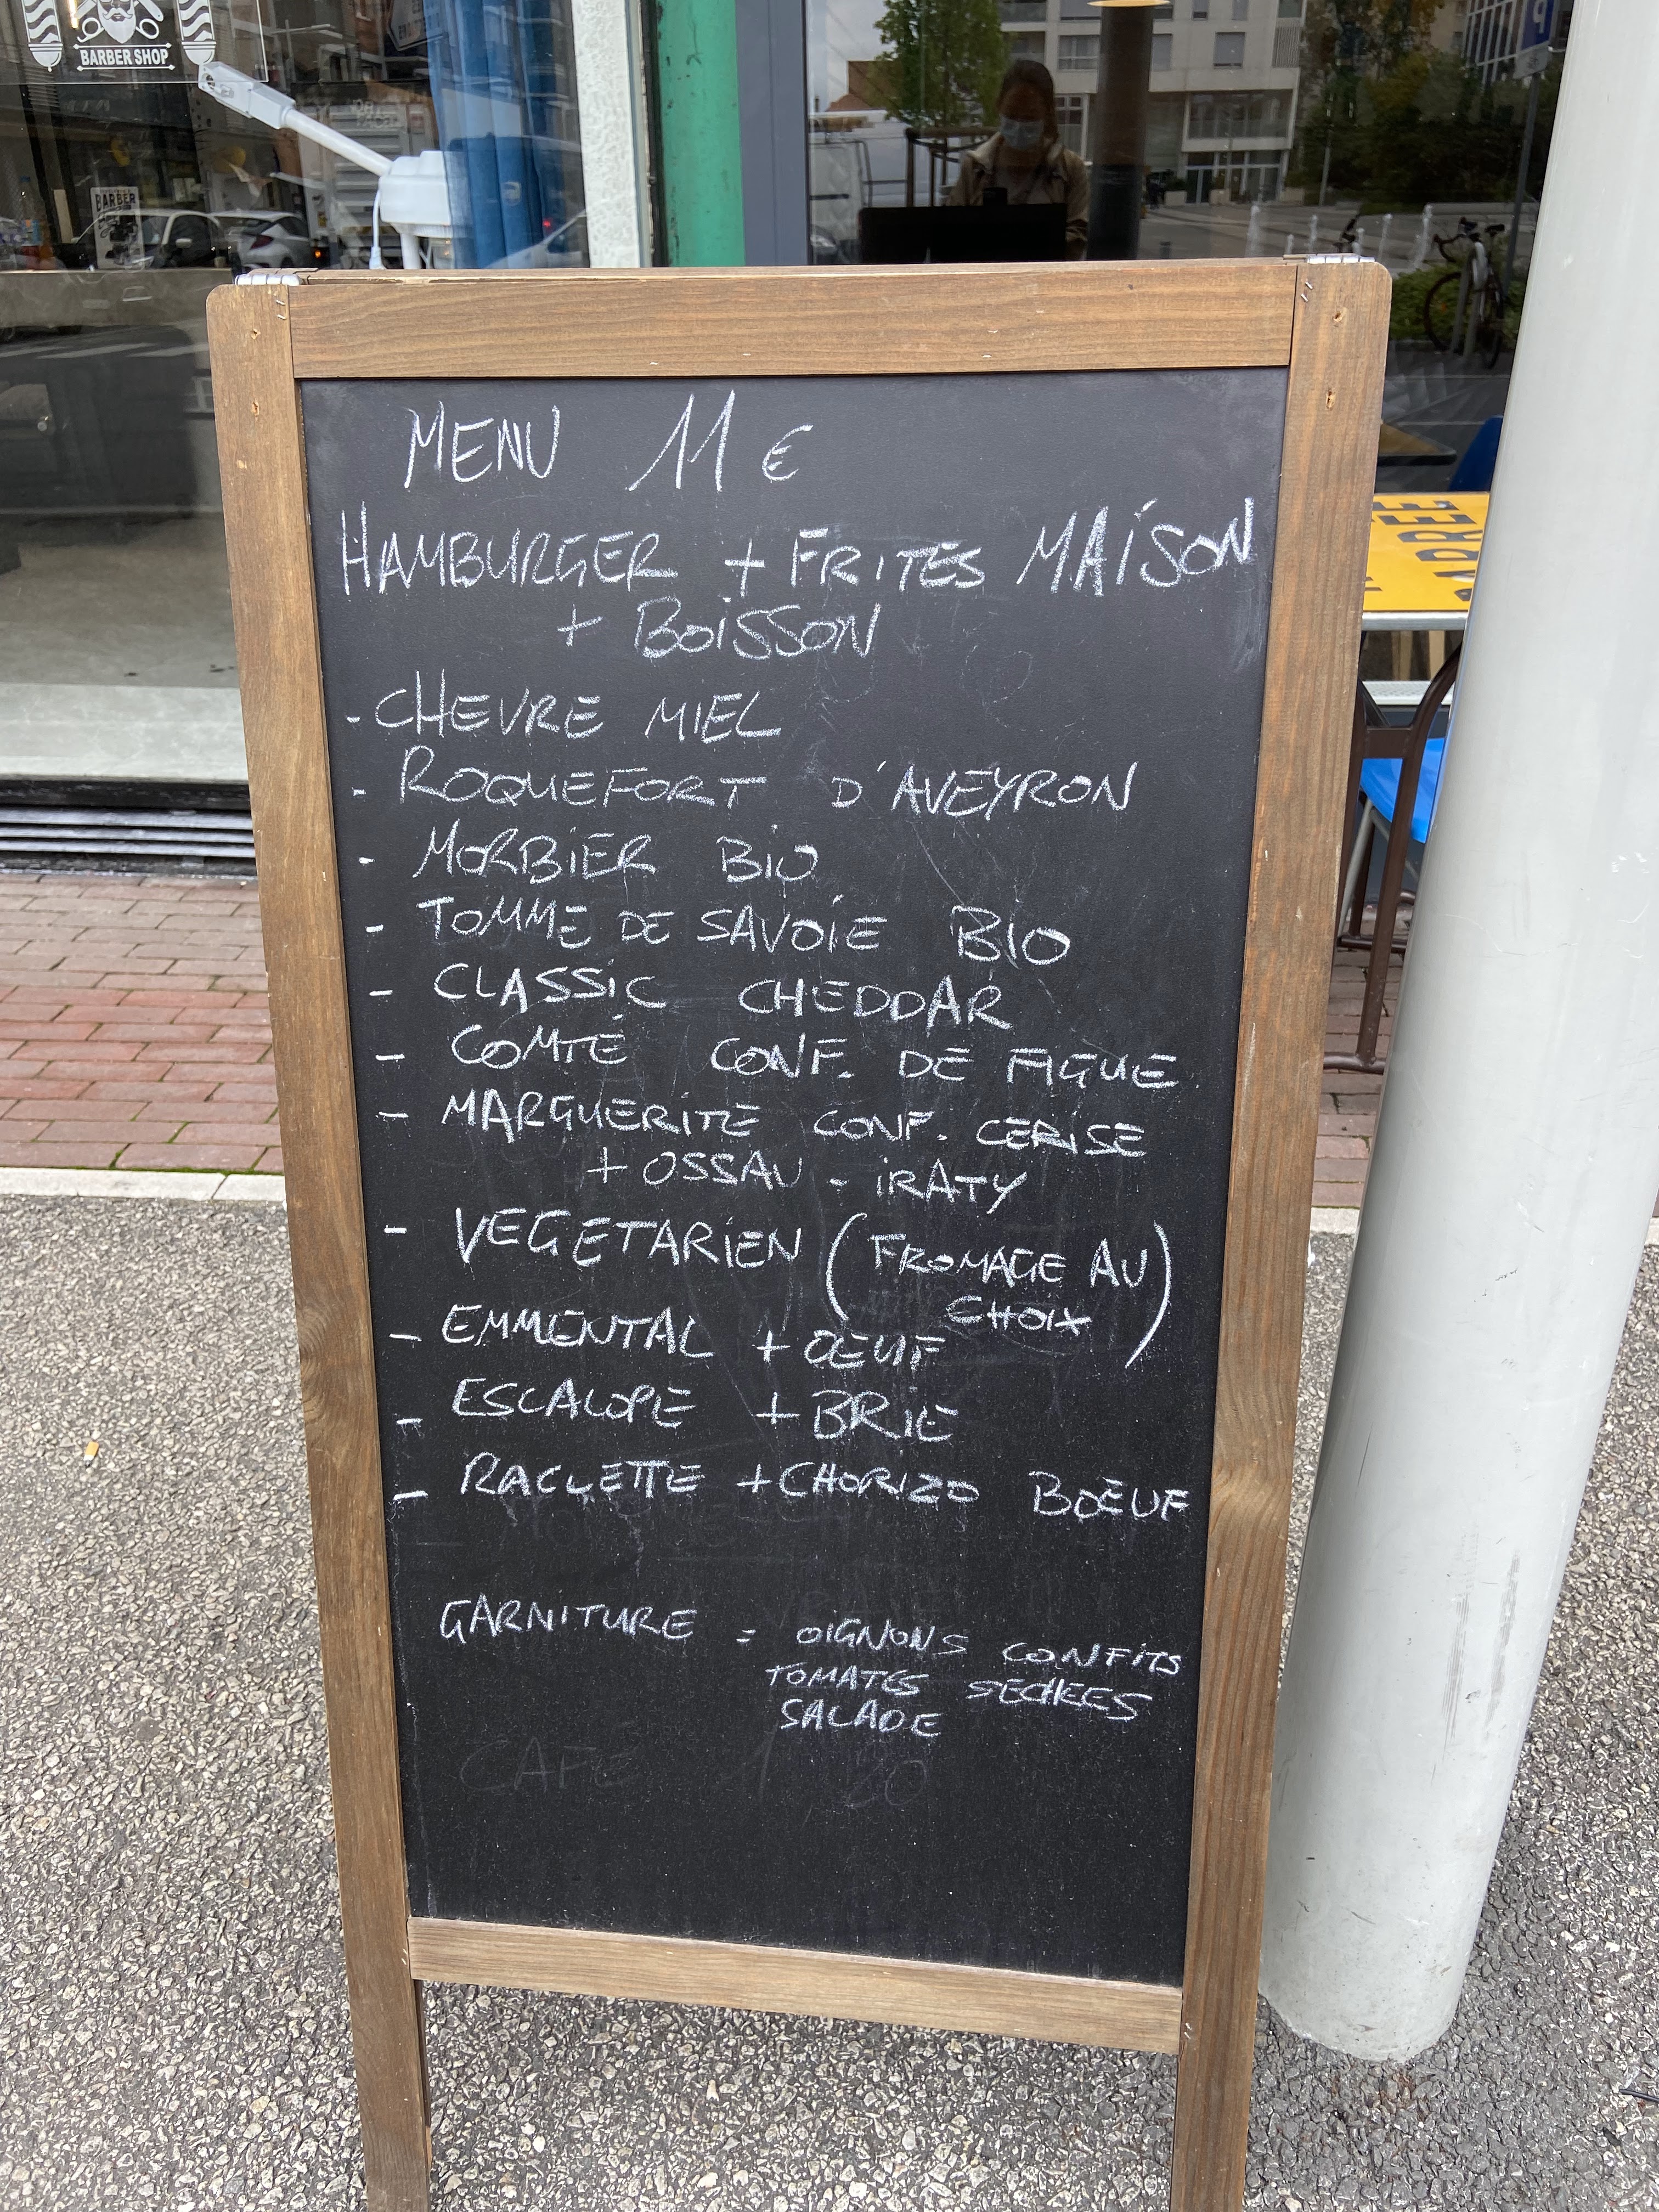 BARBER SHOP
BARBER
MENU 11 €
HAMBURGER + FRITES MAISON
+ BOISSON
- CHEVRE MIEL
- ROQUEFORT D'AVEYRON
- MORBIER BIO
- TOMME DE SAVOIE BIO
- CLASSIC CHEDDAR
- COMTÉ CONF. DE FIGUE
- MARGUERITE CONF. CERISE
+ OSSAU - IRATY
- VEGETARIEN (FROMAGE AU
CHOIX)
- EMMENTAL + OEUF
- ESCALOPE + BRIE
- RACLETTE + CHORIZO BOEUF
GARNITURE = OIGNONS CONFITS
TOMATES SECHEES
SALADE
CAFE 1 20